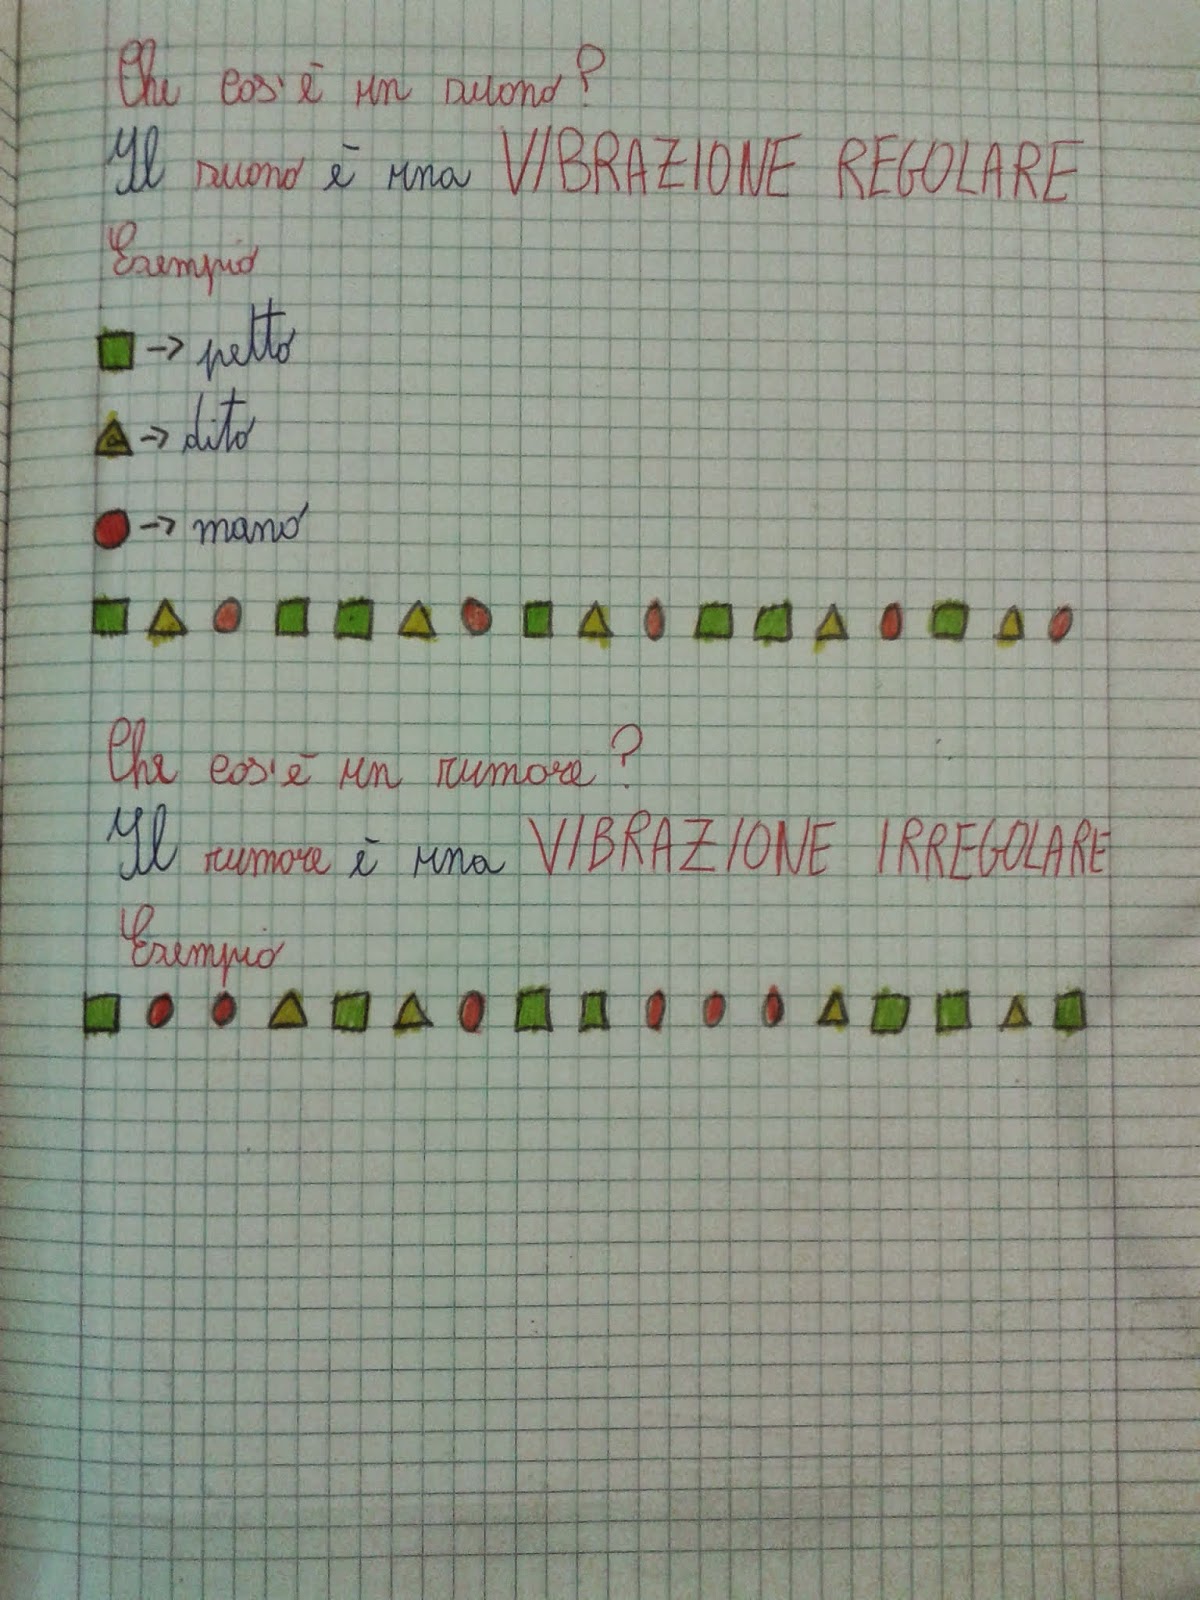 Che cos'è un suono?
Il suono è una VIBRAZIONE REGOLARE
Esempio
→ petto
→ dito
→ mano
Che cos'è un rumore?
Il rumore è una VIBRAZIONE IRREGOLARE
Esempio